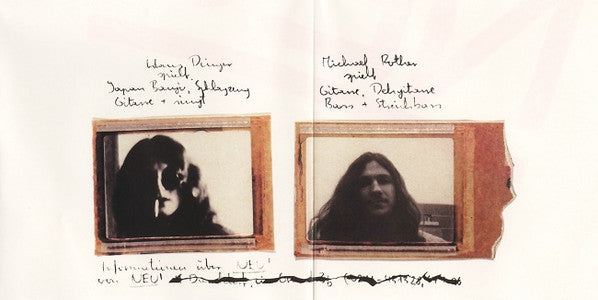 Klaus Dinger
spielt
Japan Banjo, Schlagzeug
Gitarre + singt
Michael Rother
spielt
Gitarre, Dehgitarre
Bass + Streichbass
Informationen über NEU!
von NEU!